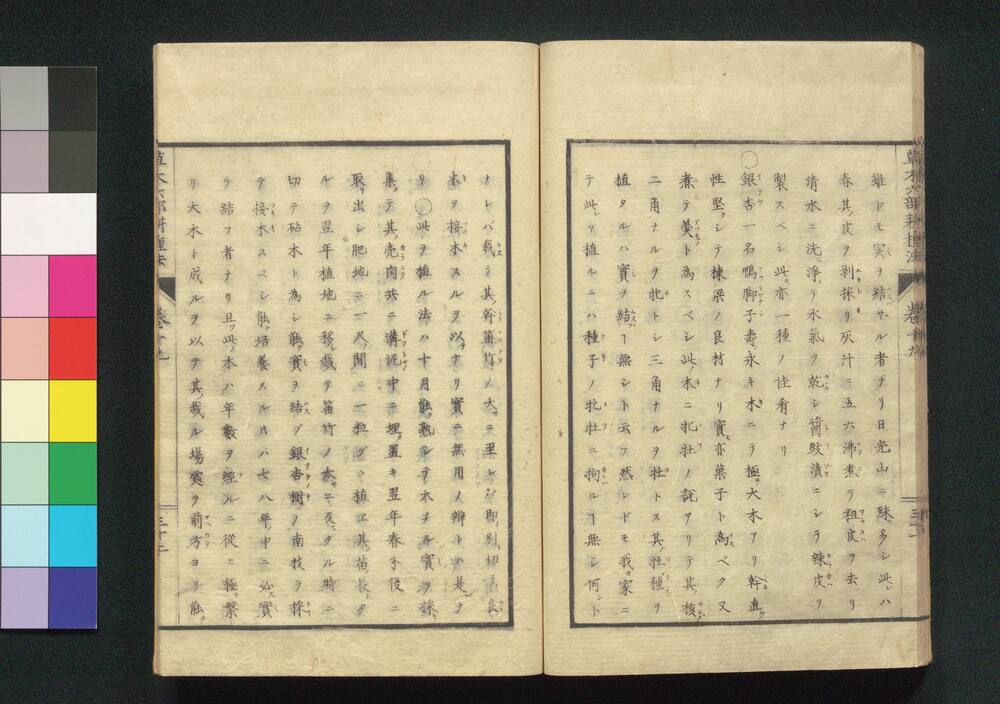 草木六部耕種法 卷十九
雖ドモ実ヲ結ザル者ナリ日光山ニ殊ニ多シ此レハ
春其皮ヲ剥採リ灰汁ニ五六沸煮テ粗皮ヲ去リ
清水ニ洗浄テ水氣ヲ乾シ醬豉漬ニシテ辣皮ヲ
製スベシ此亦一種ノ佳肴ナリ
○銀杏一名鴨脚子壽永キ木ニテ極大木アリ幹直ク
性堅クシテ棟梁ノ良材ナリ實モ亦菓子ト為ベク又
煮テ羹ト為スベシ此木ニ牝牡ノ説アリテ其核
二角ナルヲ牝トシ三角ナルヲ牡トス其牡種ヲ
植タルハ實ヲ結ヿ無シト云フ然レドモ我家ニ
テ此レヲ植ルニハ種子ノ牝牡ニ拘ルヿ無シ何ント
ナレバ栽テ其幹笛竹ノ大サニ至レバ即別切
木ヲ接木スルヲ以ナリ實ニ無用ノ辨トハ是ヲ
リ○此ヲ植ル法ハ十月能熟シテ木ナル實ヲ採リ
集テ其売肉共ニ溝泥中ニ埋置キ翌年春分後ニ
取出シ肥地ニ一尺間ニ一粒ヅヽ植エ其苗長タ
ルヲ翌年植地ニ移シ栽ヲ笛竹ノ太サニ及タル時ニ
切テ砧木ト為シ能實ヲ結ブ銀杏樹ノ南枝ヲ採
テ接木スベシ能培養スルトキハ七八年中ニ必實
ラ結フ者ナリ且此ノ木ハ年數ヲ經ルニ從ニ極テ繁
リ大木ト成ルヲ以テ其栽ル場處ヲ前方ヨリ能ク
草木六部耕種法 卷十九 三十二